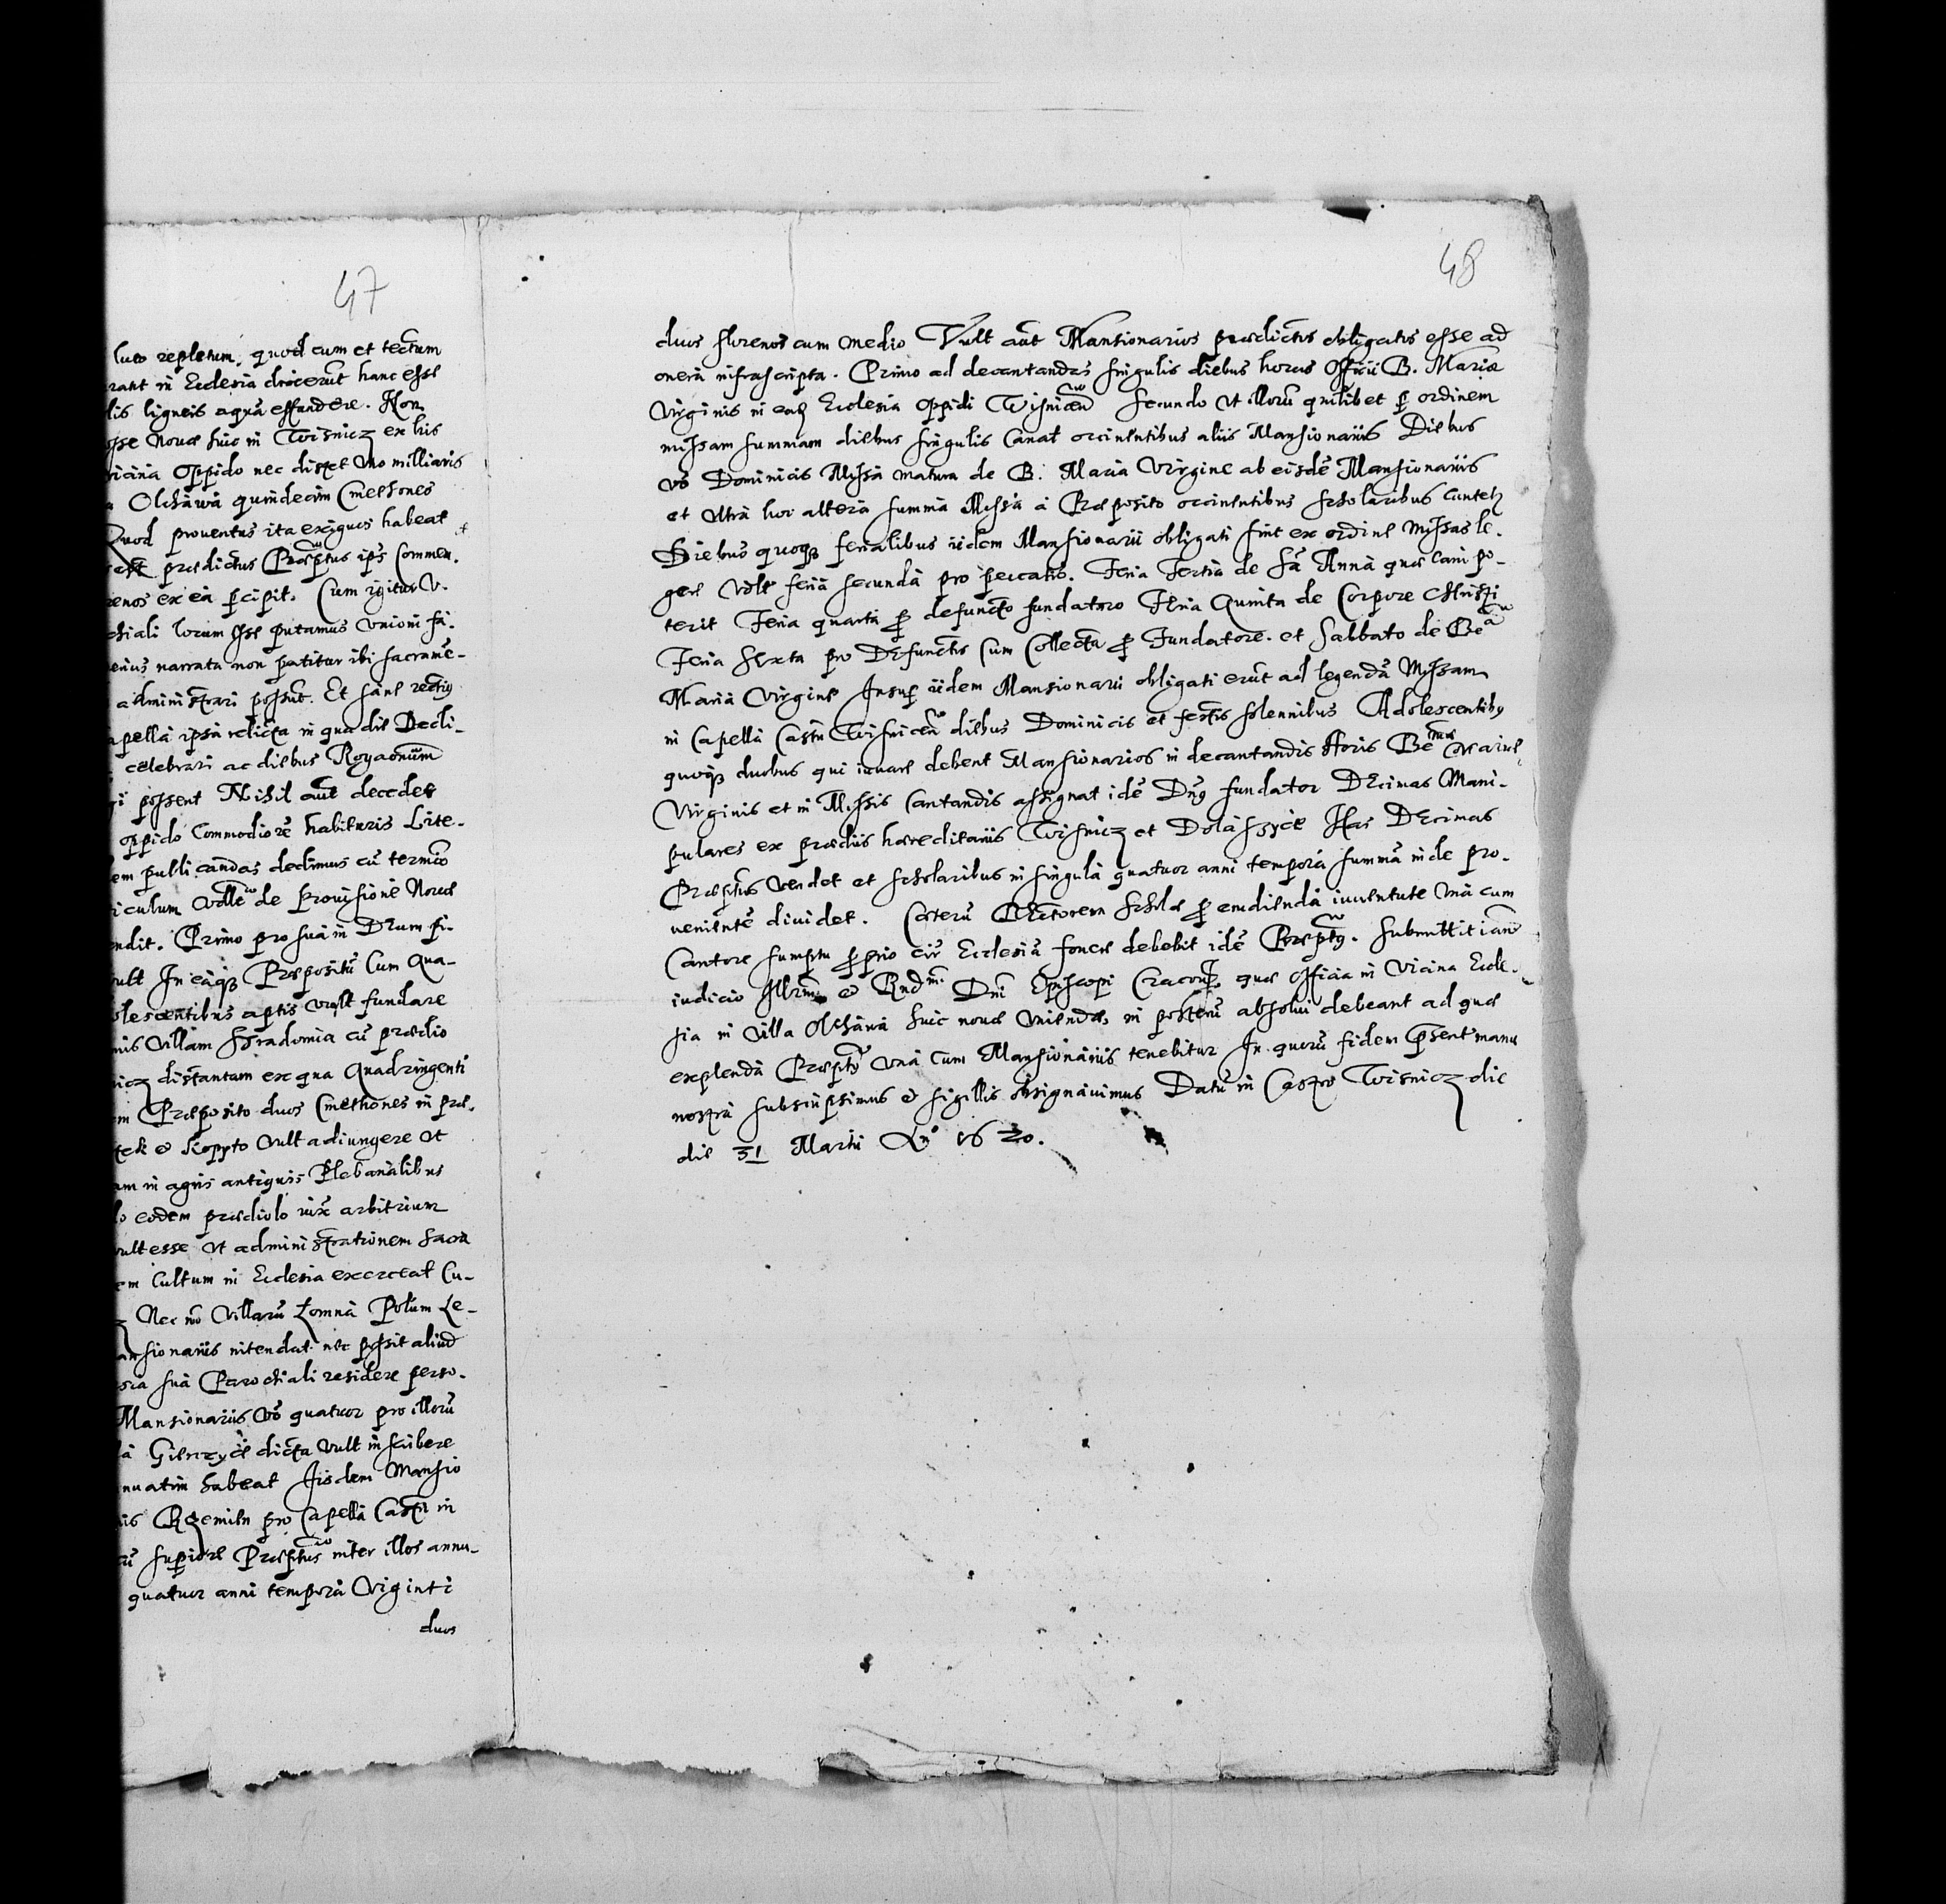 47
luto repletum, quod cum et tectum
rant in Ecclesia dixerūt hanc esse
lis ligneis aquā effundere. Non
sse Nouæ huic in Wisnicz ex his
vicina Oppido nec distet Vno milliaris
Olchàwà quindecim Cmethones
Quod prouentus ita exiguos habeat
prædictus Præptus ips Commen.
renos ex ea pcipit. Cum igitur V.
chiali locum esse putamus Vnioni fa.
erius narrata non patitur ibi sacrame-
administrari possūt. Et sane rectius
apella ipsa relicta in qua die Dedi-
celebrari ac diebus Rogaonum
gi possent Nihil aut decedet
oppido Commodiorē habituris Lite-
em publicandas dedimus cū termio
iculum de Prouisione Nouæ
endit. Primo pro sua in Deum pi-
vult In eaq Præpositū Cum qua-
olescentibus aptis vult fundare
nis Villam Stradomia cū prædio
nicz distantem ex qua Quadringenti
em Præposito duos Cmethones in præ.
tek & Kopyto vult adiungere Vt
am in agris antiquis Plebanalibus
lo eodem prædiolo iuxta arbitrium
vult esse Vt administrationem Sacra
em Cultum in Ecclesia exerceat Cu-
Nec nō Villarū Łomnà Połum Le-
ansionariis intendat nec possit aliud
sia sua Parochiali residere perso.
Mansionariis Vō quatuor pro illorū
là Gierczyce dicta vult inscribere
nuatim habeat Jisdem Mansio
iis Rzemien pro Capella Castri in
rū supiore Præptus inter illos annu-
quatuor anni tempora Viginti
duos
48
duos florenos cum medio Vult aūt Mansionarios prædictos obligatos esse ad
onera infrascripta. Primo ad decantandas singulis diebus horas Officii B. Mariæ
Virginis in eadʒ Ecclesia oppidi Wisnicen Secundo Vt illorū quilibet p ordinem
missam summam diebus singulis Canat occinentibus aliis Mansionariis Diebus
vō Dominicis Missa matura de B: Maria Virgine ab eisdē Mansionariis
et Vltra hoc altera summa Missa a Præposito occinentibus scholaribus Cantetʒ
Diebus quoqʒ ferialibus iidem Mansionarii obligati sint ex ordine Missas le-
gere Vdlt feria secunda pro peccatis. Feria Tertia de Sā Anna quæ Cani po-
terit Feria quarta p defuncto fundatoro Feria Quinta de Corpore Christi
Feria Sexta pro Defunctis Cum Collecta p Fundatore. et Sabbato de Bea
Maria Virgine Insup iidem Mansionarii obligati erūt ad legendā Missam
in Capella Castri Wisnicen diebus Dominicis et festis solennibus Adolescentibʒ
quoqʒ duobus qui iuuare debent Mansionarios in decantandis Horis Bemæ Mariæ
Virginis et in Missis Cantandis assignat idē Dnʒ fundator Decimas Mani-
pulares ex prædiis hæreditariis Wisnicz et Dolàszyce Has Decimas
Præptus Vendet et scholaribus in singula quatuor anni tempora summā inde pro-
uenientē diuidet. Cæterū Rectorem Scholæ p erudienda iuuentute Vna cum
Cantore sumptu pprio eiʒ Ecclesiæ fouere debebit idē Præptʒ. Submittit iam
iudicio Illrmi & Rndmi Dni Episcopi Cracouʒ quæ officia in Vicina Eccle-
sia in Villa Olchàwà huic nouæ Vnienda, in posterū absolui debeant ad quæ
explenda Præptʒ Vna Cum Mansionariis tenebitur In quorū fidem Psent manu
nostra subscripsimus & sigillis obsignauimus Datū in Castro Wisnicz die
die 31 Martii Ano 1620.